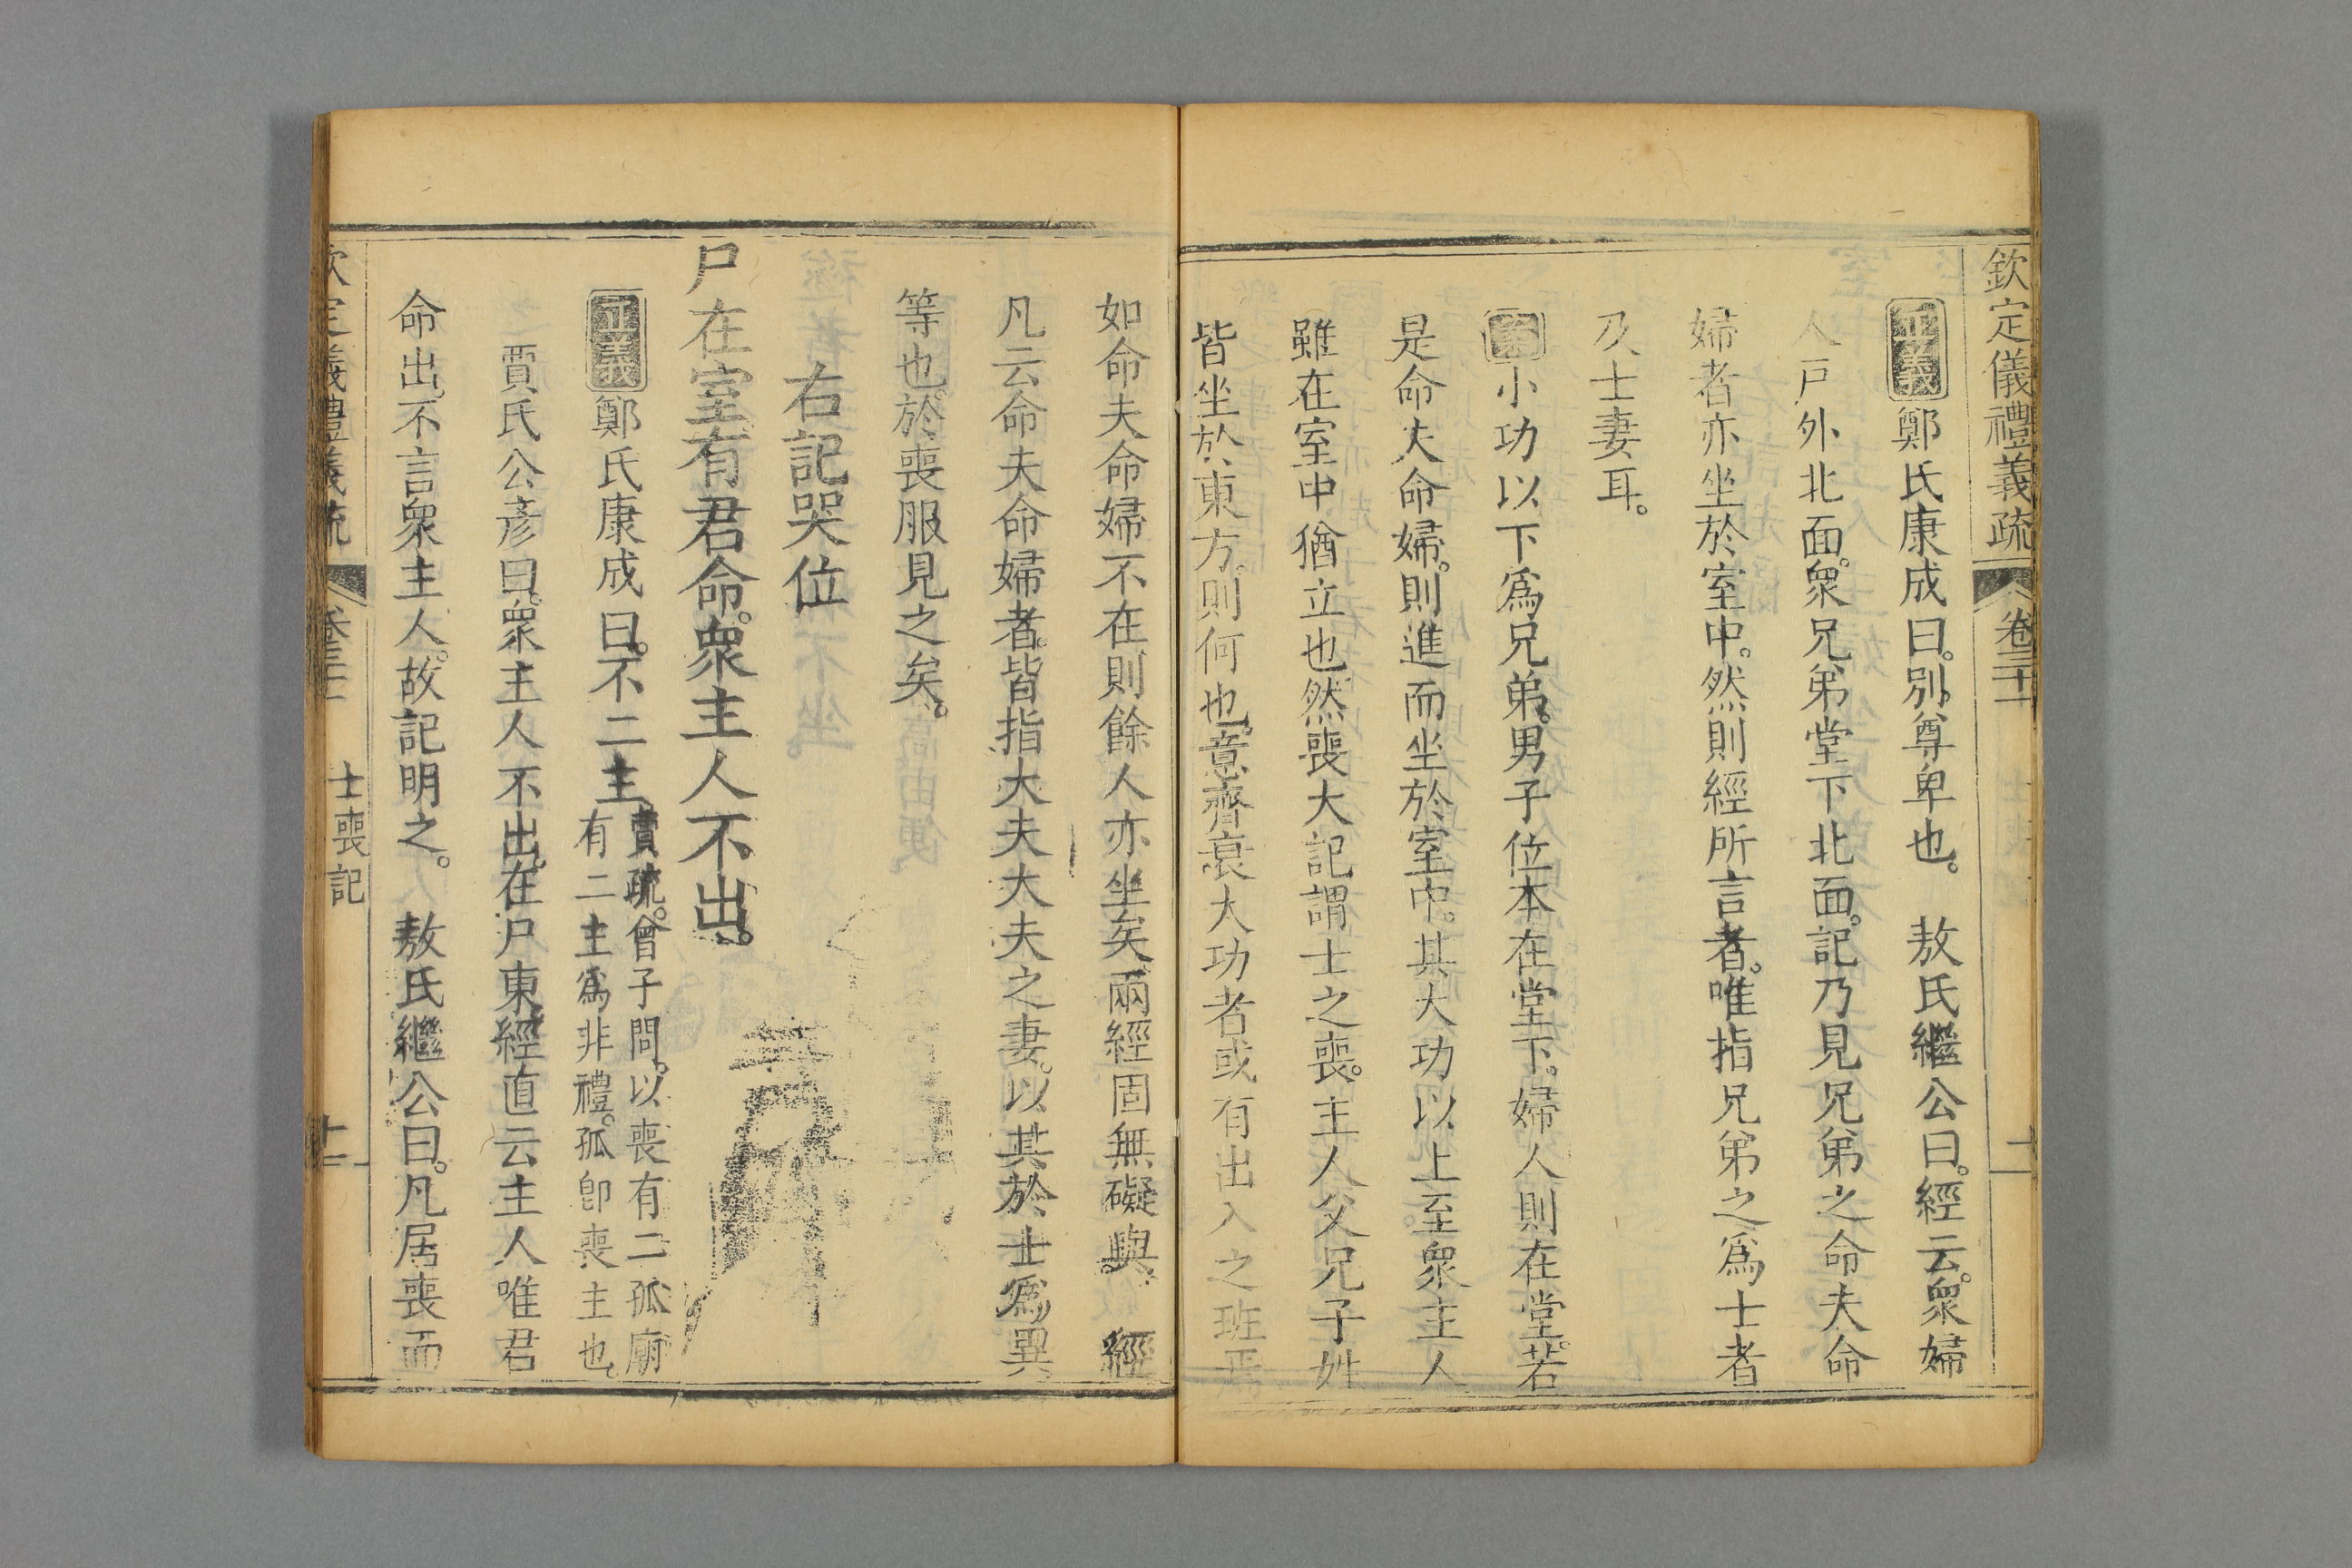 欽定儀禮義疏 卷三十一
正義 鄭氏康成曰。別尊卑也。 敖氏繼公曰。經云。衆婦
人戶外北面。衆兄弟堂下北面。記乃見兄弟之命夫命
婦者亦坐於室中。然則經所言者。唯指兄弟之爲士者
及士妻耳。
案 小功以下爲兄弟。男子位本在堂下。婦人則在堂。若
是命夫命婦。則進而坐於室中。其大功以上至衆主人
雖在室中猶立也。然喪大記謂士之喪。主人父兄子姓
皆坐於東方。則何也。意齊衰大功者或有出入之班焉
如命夫命婦不在則餘人亦坐矣。兩經固無礙與。 經
凡云命夫命婦者。皆指大夫大夫之妻。以其於士爲異
等也。於喪服見之矣。
右記哭位
尸在室有君命。衆主人不出。
正義 鄭氏康成曰。不二主。賈疏。曾子問。以喪有二孤廟
有二主爲非禮。孤卽喪主也。
賈氏公彥曰。衆主人不出。在尸東。經直云主人唯君
命出。不言衆主人。故記明之。 敖氏繼公曰。凡居喪而
欽定儀禮義疏 卷三十一 士喪記 十一